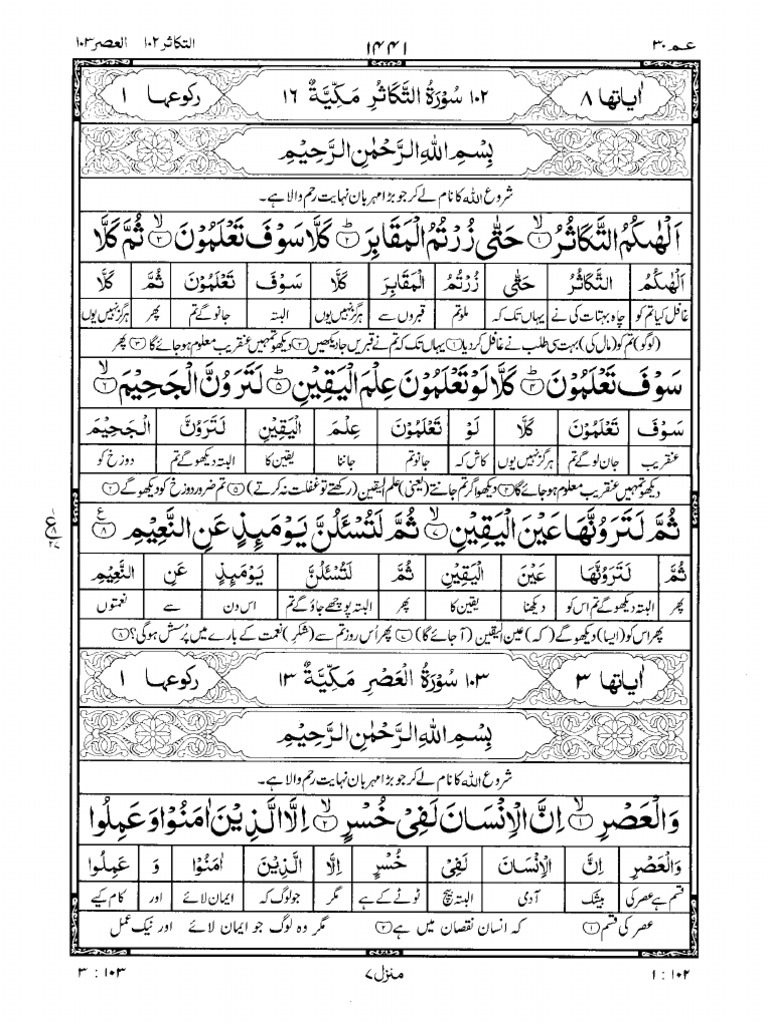 عـم ٣٠ ١٤٤١ التكاثر ١٠٢ العصر ١٠٣
اٰياتها ٨ ١٠٢ سُوْرَةُ التَّكَاثُرِ مَكِّيَّةٌ ١٦ ركوعها ١
بِسْمِ اللّٰهِ الرَّحْمٰنِ الرَّحِيْمِ
شروع اللہ کا نام لے کر جو بڑا مہربان نہایت رحم والا ہے۔
اَلْهٰىكُمُ التَّكَاثُرُ ۙ﴿١﴾ حَتّٰى زُرْتُمُ الْمَقَابِرَ ؕ﴿٢﴾ كَلَّا سَوْفَ تَعْلَمُوْنَ ۙ﴿٣﴾ ثُمَّ كَلَّا
اَلْهٰىكُمُ التَّكَاثُرُ حَتّٰى زُرْتُمُ الْمَقَابِرَ كَلَّا سَوْفَ تَعْلَمُوْنَ ثُمَّ كَلَّا
غافل کیا تم کو چاہ بہتات کی نے یہاں تک کہ ملو تم قبروں سے ہرگز نہیں یوں البتہ جانو گے تم پھر ہرگز نہیں یوں
(لوگو) تم کو (مال کی) بہت سی طلب نے غافل کر دیا ﴿١﴾ یہاں تک کہ تم نے قبریں جا دیکھیں ﴿٢﴾ دیکھو تمہیں عنقریب معلوم ہو جائے گا ﴿٣﴾ پھر
سَوْفَ تَعْلَمُوْنَ ؕ﴿٤﴾ كَلَّا لَوْ تَعْلَمُوْنَ عِلْمَ الْيَقِيْنِ ؕ﴿٥﴾ لَتَرَوُنَّ الْجَحِيْمَ ۙ﴿٦﴾
سَوْفَ تَعْلَمُوْنَ كَلَّا لَوْ تَعْلَمُوْنَ عِلْمَ الْيَقِيْنِ لَتَرَوُنَّ الْجَحِيْمَ
عنقریب جان لو گے تم ہرگز نہیں یوں کاش کہ جانو تم جاننا یقین کا البتہ دیکھو گے تم دوزخ کو
دیکھو تمہیں عنقریب معلوم ہو جائے گا ﴿٤﴾ دیکھو اگر تم جانتے (یعنی) علم الیقین (رکھتے تو غفلت نہ کرتے) ﴿٥﴾ تم ضرور دوزخ کو دیکھو گے ﴿٦﴾
ثُمَّ لَتَرَوُنَّهَا عَيْنَ الْيَقِيْنِ ۙ﴿٧﴾ ثُمَّ لَتُسْـَٔلُنَّ يَوْمَىِٕذٍ عَنِ النَّعِيْمِ ﴿٨﴾ ع
ثُمَّ لَتَرَوُنَّهَا عَيْنَ الْيَقِيْنِ ثُمَّ لَتُسْـَٔلُنَّ يَوْمَىِٕذٍ عَنِ النَّعِيْمِ
پھر البتہ دیکھو گے تم اس کو دیکھنا یقین کا پھر البتہ پوچھے جاؤ گے تم اس دن سے نعمتوں
پھر اس کو (ایسا) دیکھو گے (کہ) عین الیقین (آ جائے گا) ﴿٧﴾ پھر اُس روز تم سے (شکر) نعمت کے بارے میں پُرسش ہوگی؟ ﴿٨﴾
اٰياتها ٣ ١٠٣ سُوْرَةُ الْعَصْرِ مَكِّيَّةٌ ١٣ ركوعها ١
بِسْمِ اللّٰهِ الرَّحْمٰنِ الرَّحِيْمِ
شروع اللہ کا نام لے کر جو بڑا مہربان نہایت رحم والا ہے۔
وَالْعَصْرِ ۙ﴿١﴾ اِنَّ الْاِنْسَانَ لَفِيْ خُسْرٍ ۙ﴿٢﴾ اِلَّا الَّذِيْنَ اٰمَنُوْا وَعَمِلُوا
وَالْعَصْرِ اِنَّ الْاِنْسَانَ لَفِيْ خُسْرٍ اِلَّا الَّذِيْنَ اٰمَنُوْا وَ عَمِلُوا
قسم ہے عصر کی بیشک آدمی البتہ بیچ ٹوٹے کے ہے مگر جو لوگ کہ ایمان لائے اور کام کیے
عصر کی قسم ﴿١﴾ کہ انسان نقصان میں ہے ﴿٢﴾ مگر وہ لوگ جو ایمان لائے اور نیک عمل
١٠٢ : ١ منزل ٧ ١٠٣ : ٣